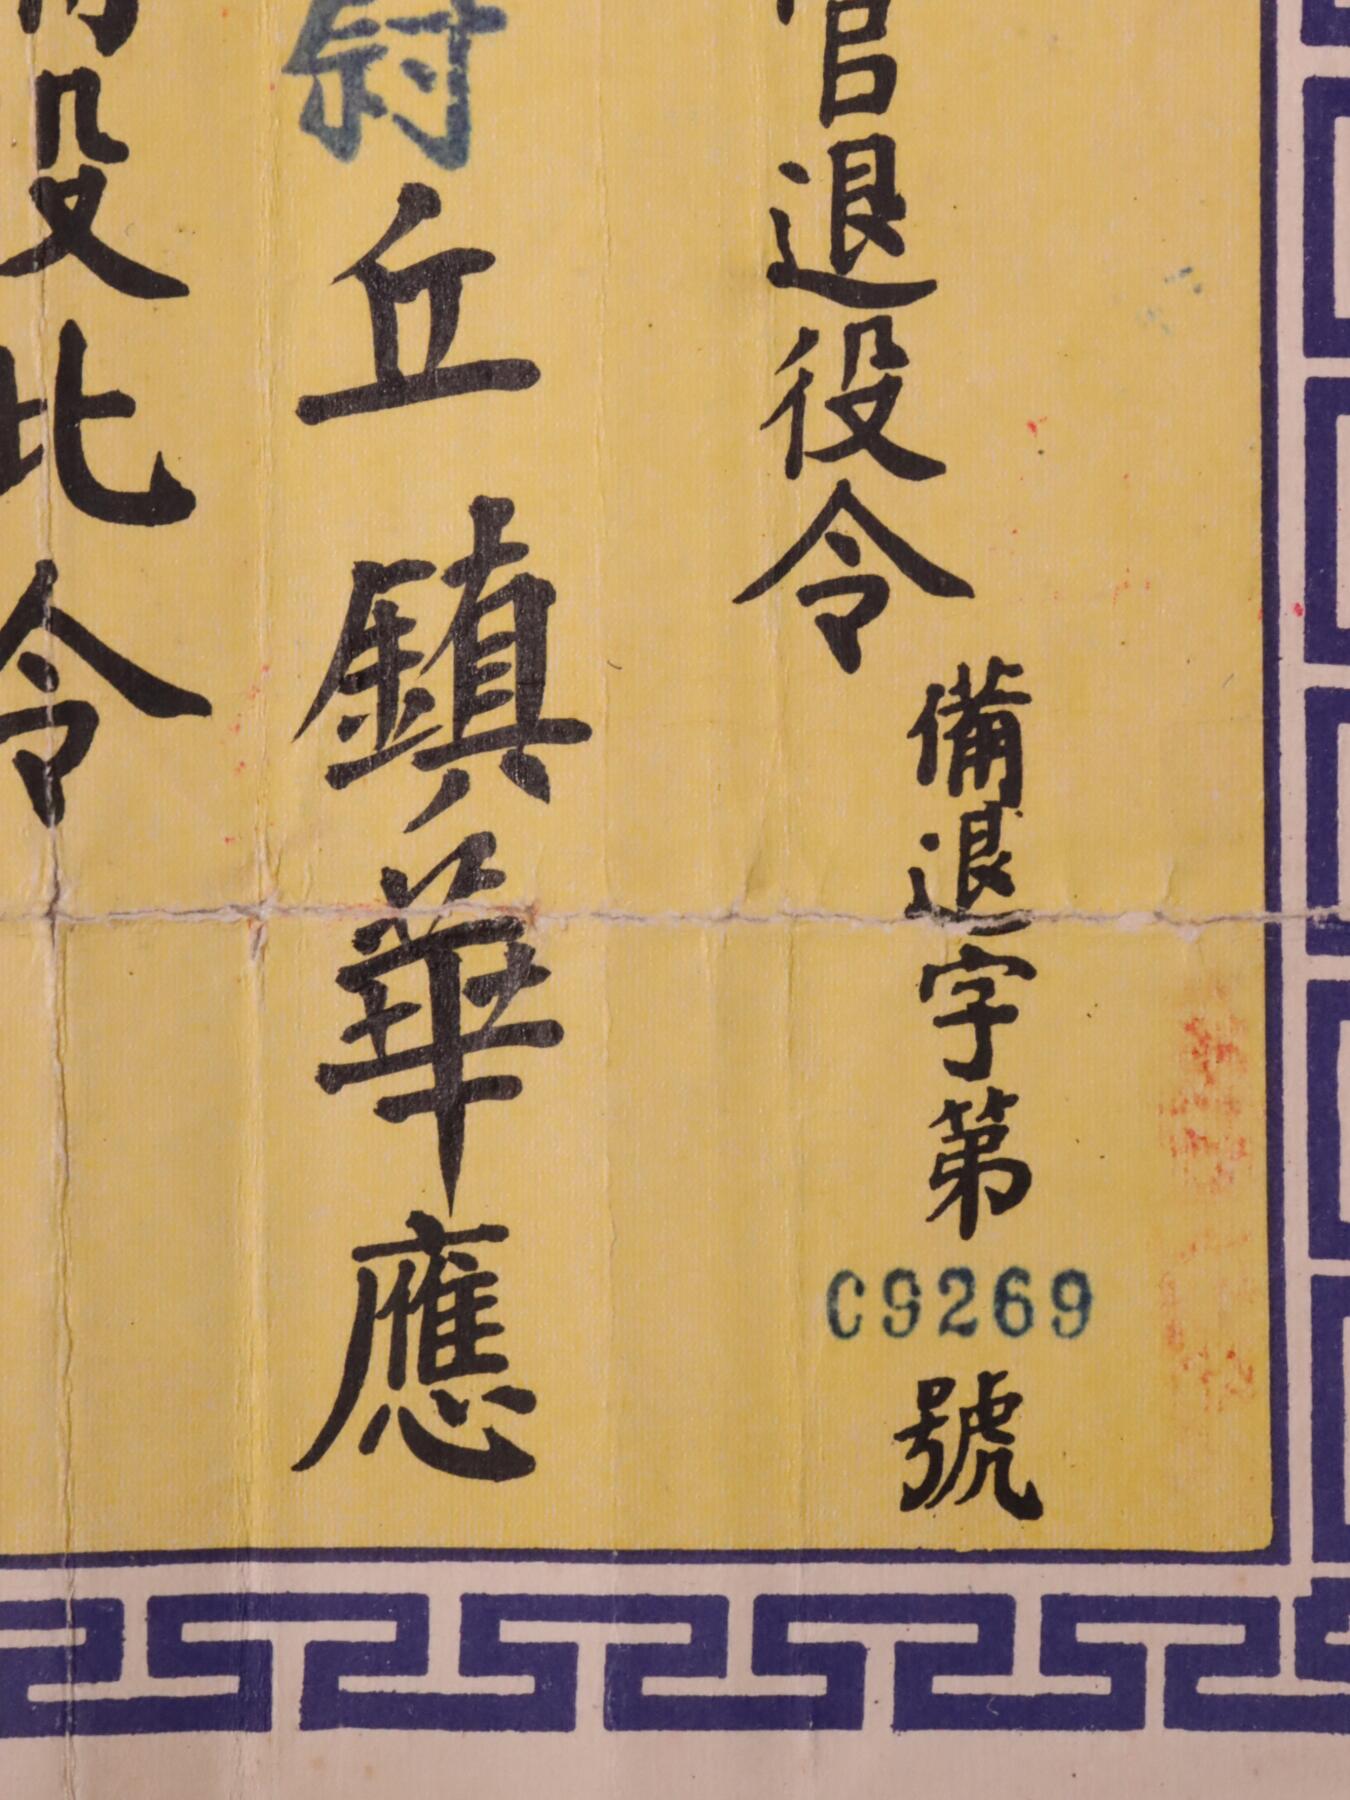 官退役令
備退字第C9269號
尉丘鎮華應
役此令